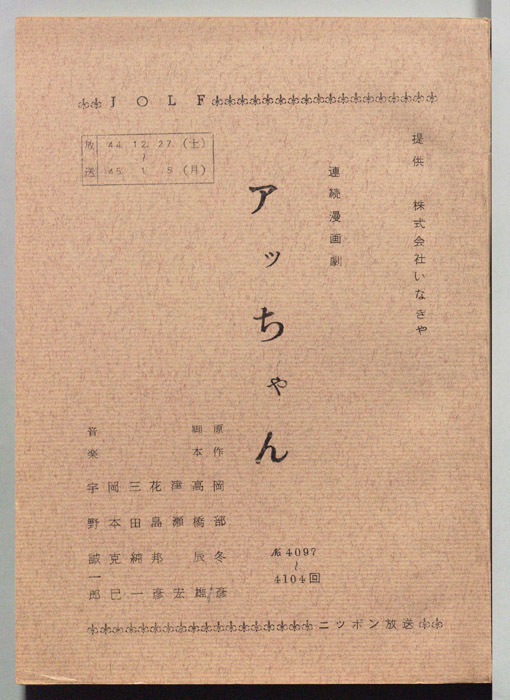 JOLF
提供 株式会社いなきや
連続漫画劇
アッちゃん
放送 44.12.27(土)
~
45. 1. 5(月)
№4097
~
4104回
原作 岡部冬彦
脚本 高橋辰雄
津瀬宏
花島邦彦
三田純一
岡本克巳
音楽 宇野誠一郎
ニッポン放送